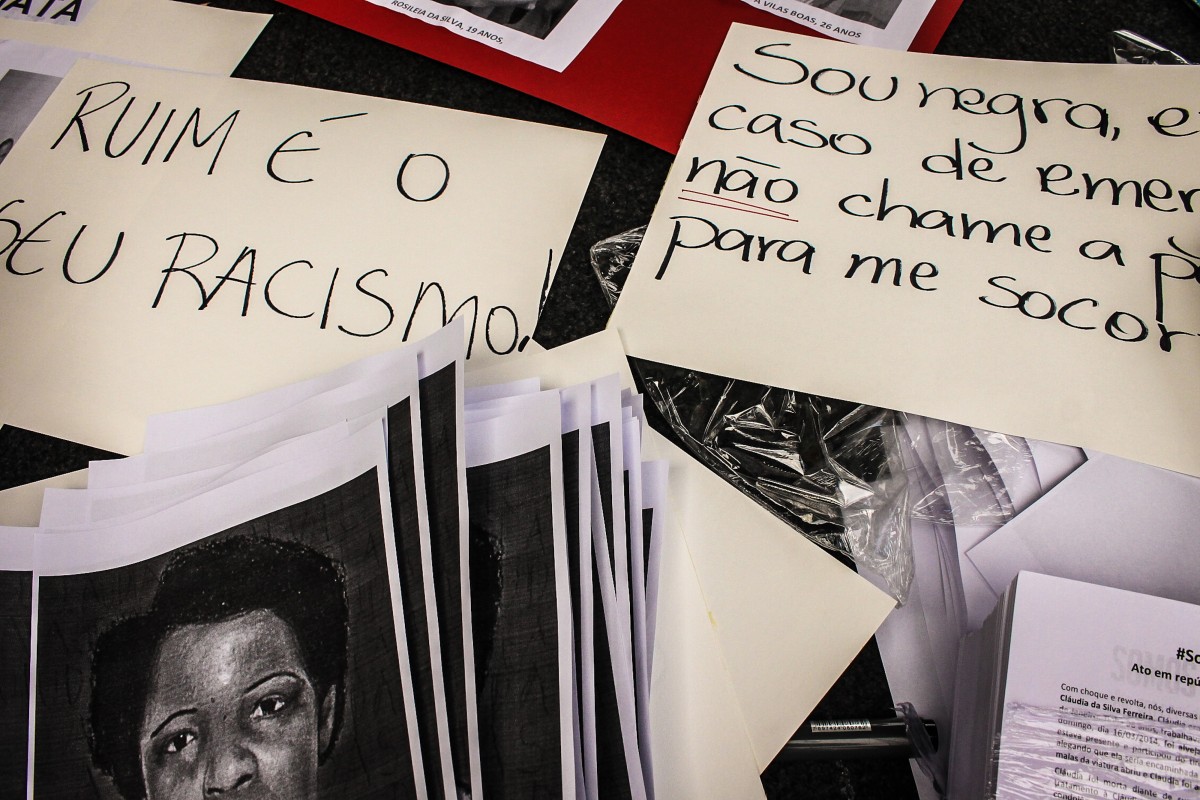 ATA
ROSILEIA DA SILVA, 19 ANOS,
A VILAS BOAS, 26 ANOS
RUIM É O
SEU RACISMO!
Sou negra, e
caso de emer
não chame a p
para me socor
#So
Ato em repú
Com choque e revolta, nós, diversas
Cláudia da Silva Ferreira. Cláudia
anos, trabalha
domingo, dia 16/03/2014, foi
estava presente e participou do
alegando que ela seria encaminhada
malas da viatura abriu e Cláudia foi
Cláudia foi morta diante de
tratamento à